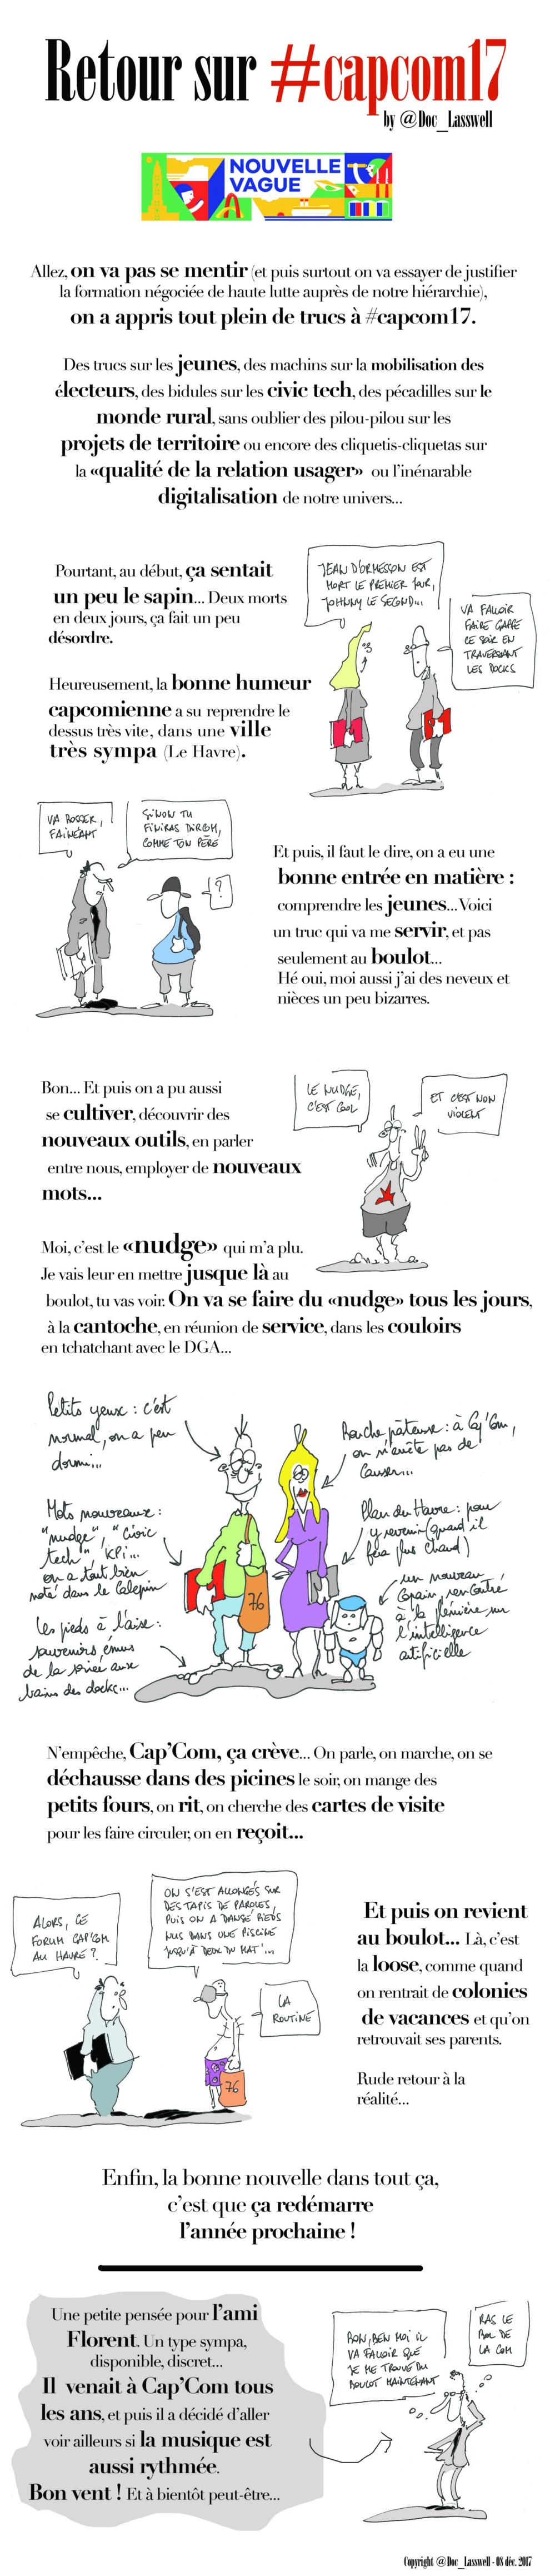 Retour sur #capcom17
by @Doc_Lasswell
NOUVELLE
VAGUE
Allez, on va pas se mentir (et puis surtout on va essayer de justifier
la formation négociée de haute lutte auprès de notre hiérarchie),
on a appris tout plein de trucs à #capcom17.
Des trucs sur les jeunes, des machins sur la mobilisation des
électeurs, des bidules sur les civic tech, des pécadilles sur le
monde rural, sans oublier des pilou-pilou sur les
projets de territoire ou encore des cliquetis-cliquetas sur
la «qualité de la relation usager» ou l'inénarable
digitalisation de notre univers...
Pourtant, au début, ça sentait
un peu le sapin... Deux morts
en deux jours, ça fait un peu
désordre.
Heureusement, la bonne humeur
capcomienne a su reprendre le
dessus très vite, dans une ville
très sympa (Le Havre).
JEAN D'ORMESSON EST
MORT LE PREMIER JOUR,
JOHNNY LE SECOND...
VA FALLOIR
FAIRE GAFFE
CE SOIR EN
TRAVERSANT
LES DOCKS
VA BOSSER,
FAINÉANT
SINON TU
FINIRAS DIRCOM,
COMME TON PÈRE
?
Et puis, il faut le dire, on a eu une
bonne entrée en matière :
comprendre les jeunes... Voici
un truc qui va me servir, et pas
seulement au boulot...
Hé oui, moi aussi j'ai des neveux et
nièces un peu bizarres.
Bon... Et puis on a pu aussi
se cultiver, découvrir des
nouveaux outils, en parler
entre nous, employer de nouveaux
mots...
LE NUDGE,
C'EST COOL
ET C'EST NON
VIOLENT
Moi, c'est le «nudge» qui m'a plu.
Je vais leur en mettre jusque là au
boulot, tu vas voir. On va se faire du «nudge» tous les jours,
à la cantoche, en réunion de service, dans les couloirs
en tchatchant avec le DGA...
Petits yeux : c'est
normal, on a peu
dormi...
Mots nouveaux :
"nudge", "civic
tech", KPI...
on a tout bien
noté dans le calepin
Les pieds à l'aise :
souvenirs émus
de la soirée aux
bains des docks...
Bouche pâteuse : à Cap'Com,
on n'arrête pas de
causer...
Plan du Havre : pour
y revenir (quand il
fera plus chaud)
un nouveau
copain, rencontré
à la plénière sur
l'intelligence
artificielle
76
N'empêche, Cap'Com, ça crève... On parle, on marche, on se
déchausse dans des picines le soir, on mange des
petits fours, on rit, on cherche des cartes de visite
pour les faire circuler, on en reçoit...
ALORS, CE
FORUM CAP'COM
AU HAVRE ?
ON S'EST ALLONGÉS SUR
DES TAPIS DE PAROLES,
PUIS ON A DANSÉ PIEDS
NUS DANS UNE PISCINE
JUSQU'À DEUX DU MAT'...
LA
ROUTINE
76
Et puis on revient
au boulot... Là, c'est
la loose, comme quand
on rentrait de colonies
de vacances et qu'on
retrouvait ses parents.
Rude retour à la
réalité...
Enfin, la bonne nouvelle dans tout ça,
c'est que ça redémarre
l'année prochaine !
Une petite pensée pour l'ami
Florent. Un type sympa,
disponible, discret...
Il venait à Cap'Com tous
les ans, et puis il a décidé d'aller
voir ailleurs si la musique est
aussi rythmée.
Bon vent ! Et à bientôt peut-être...
BON, BEN MOI IL
VA FALLOIR QUE
JE ME TROUVE DU
BOULOT MAINTENANT
RAS LE
BOL DE
LA COM
Copyright @Doc_Lasswell - 08 déc. 2017